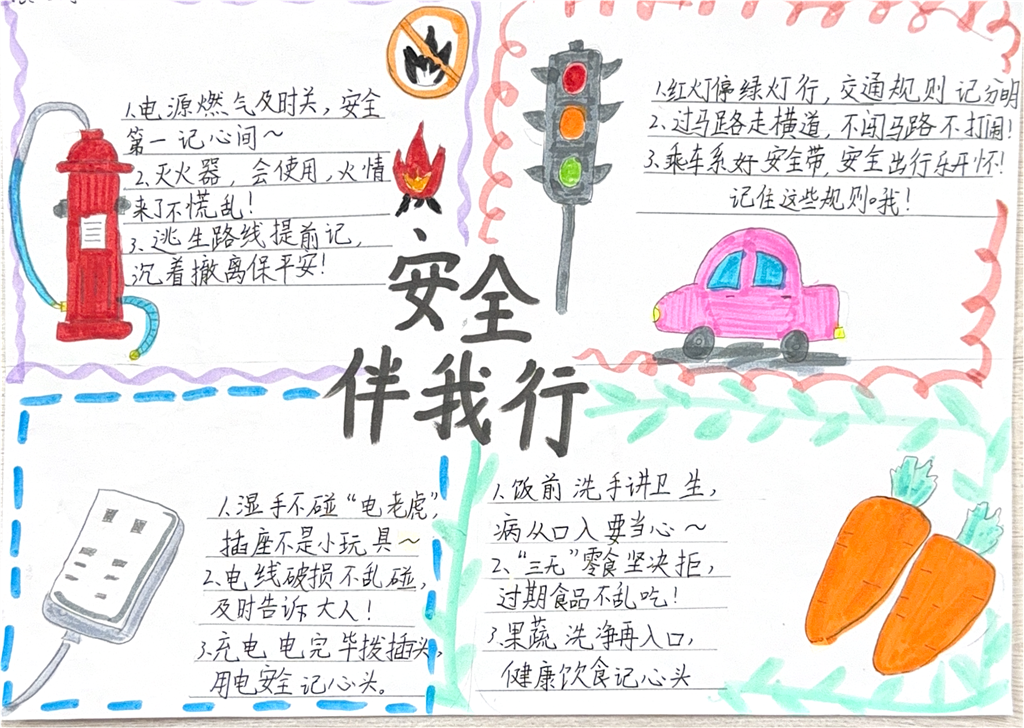 1.电源燃气及时关，安全
第一记心间～
2.灭火器，会使用，火情
来了不慌乱！
3.逃生路线提前记，
沉着撤离保平安！
1.红灯停绿灯行，交通规则记分明
2.过马路走横道，不闯马路不打闹！
3.乘车系好安全带，安全出行乐开怀！
记住这些规则哦！
安全
伴我行
1.湿手不碰“电老虎”，
插座不是小玩具～
2.电线破损不乱碰，
及时告诉大人！
3.充电电完毕拨插头，
用电安全记心头。
1.饭前洗手讲卫生，
病从口入要当心～
2.“三无”零食坚决拒，
过期食品不乱吃！
3.果蔬洗净再入口，
健康饮食记心头